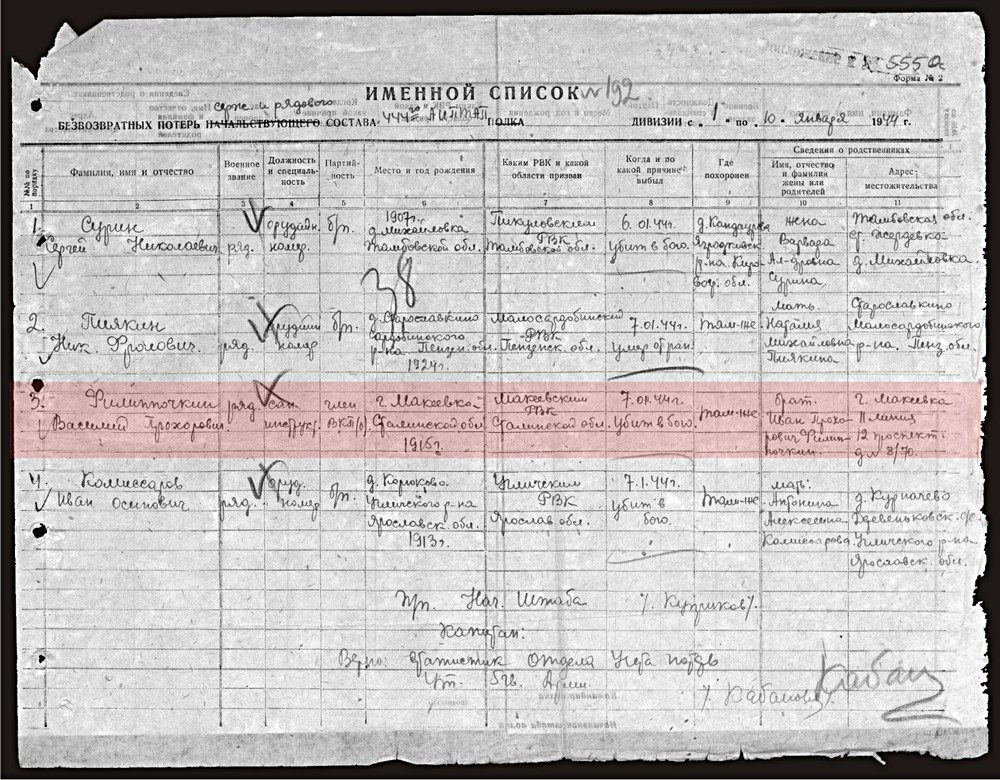 555с
Форма № 2
ИМЕННОЙ СПИСОК № 192
серж. и рядового
БЕЗВОЗВРАТНЫХ ПОТЕРЬ НАЧАЛЬСТВУЮЩЕГО СОСТАВА, 444го АИПТАП ПОЛКА ДИВИЗИИ с „1" по „10" января 1944 г.
№№ по порядку
Фамилия, имя и отчество
Военное звание
Должность и специаль-ность
Партий-ность
Место и год рождения
Каким РВК и какой области призван
Когда и по какой причине выбыл
Где похоронен
Сведения о родственниках
Имя, отчество и фамилия жены или родителей
Адрес местожительства
1 2 3 4 5 6 7 8 9 10 11
1. Сурин
Сергей Николаевич
ряд.
орудийн.
номер.
бп.
1907г.
д. Михайловка
Тамбовской обл.
РВК
Тамбовской обл.
6.01.44г.
убит в бою.
р-на Киро-
вогр. обл.
жена
Варвара
Ал-дровна
Сурина.
Тамбовская обл.
ст. Жердевка
д. Михайловка.
38
2. Пиякин
Ник. Фролович.
ряд.
орудийн
номер
бп.
д. Старославкино
р-на. Пенз. обл.
1924г.
Малосардобинский
РВК
Пензенск. обл.
7.01.44г.
умер от ран.
там-же
мать.
Наталия
Михайловна
Пиякина
Старославкино
Малосардобинского
р-на. Пенз. обл.
3. Филиппочкин
Василий Прохорович.
ряд.
сан.
инструкт.
член
ВКП(б)
г. Макеевка-
Сталинской обл.
1915г
Макеевским
РВК
Сталинской обл.
7.01.44г.
убит в бою.
там-же.
брат.
Иван Прохо-
рович Филип-
почкин.
г. Макеевка
11 линия
12 проспект
дм 8/70.
4. Комиссаров
Иван Осипович
ряд.
оруд.
номер
бп.
д. Корюково.
Угличского р-на
Ярославск. обл.
1913г.
Угличским
РВК
Ярослав. обл.
7.1.44г.
убит в
бою.
там-же
мать:
Антонина
Алексеевна
Комиссарова.
д. Курначево
Угличского р-на
Ярославск. обл.
Пп. Нач. Штаба /. Куприков/.
Капитан:
Верно: Статистик Отдела Учета потерь
5 гв. Арми.
/. Кабанова/